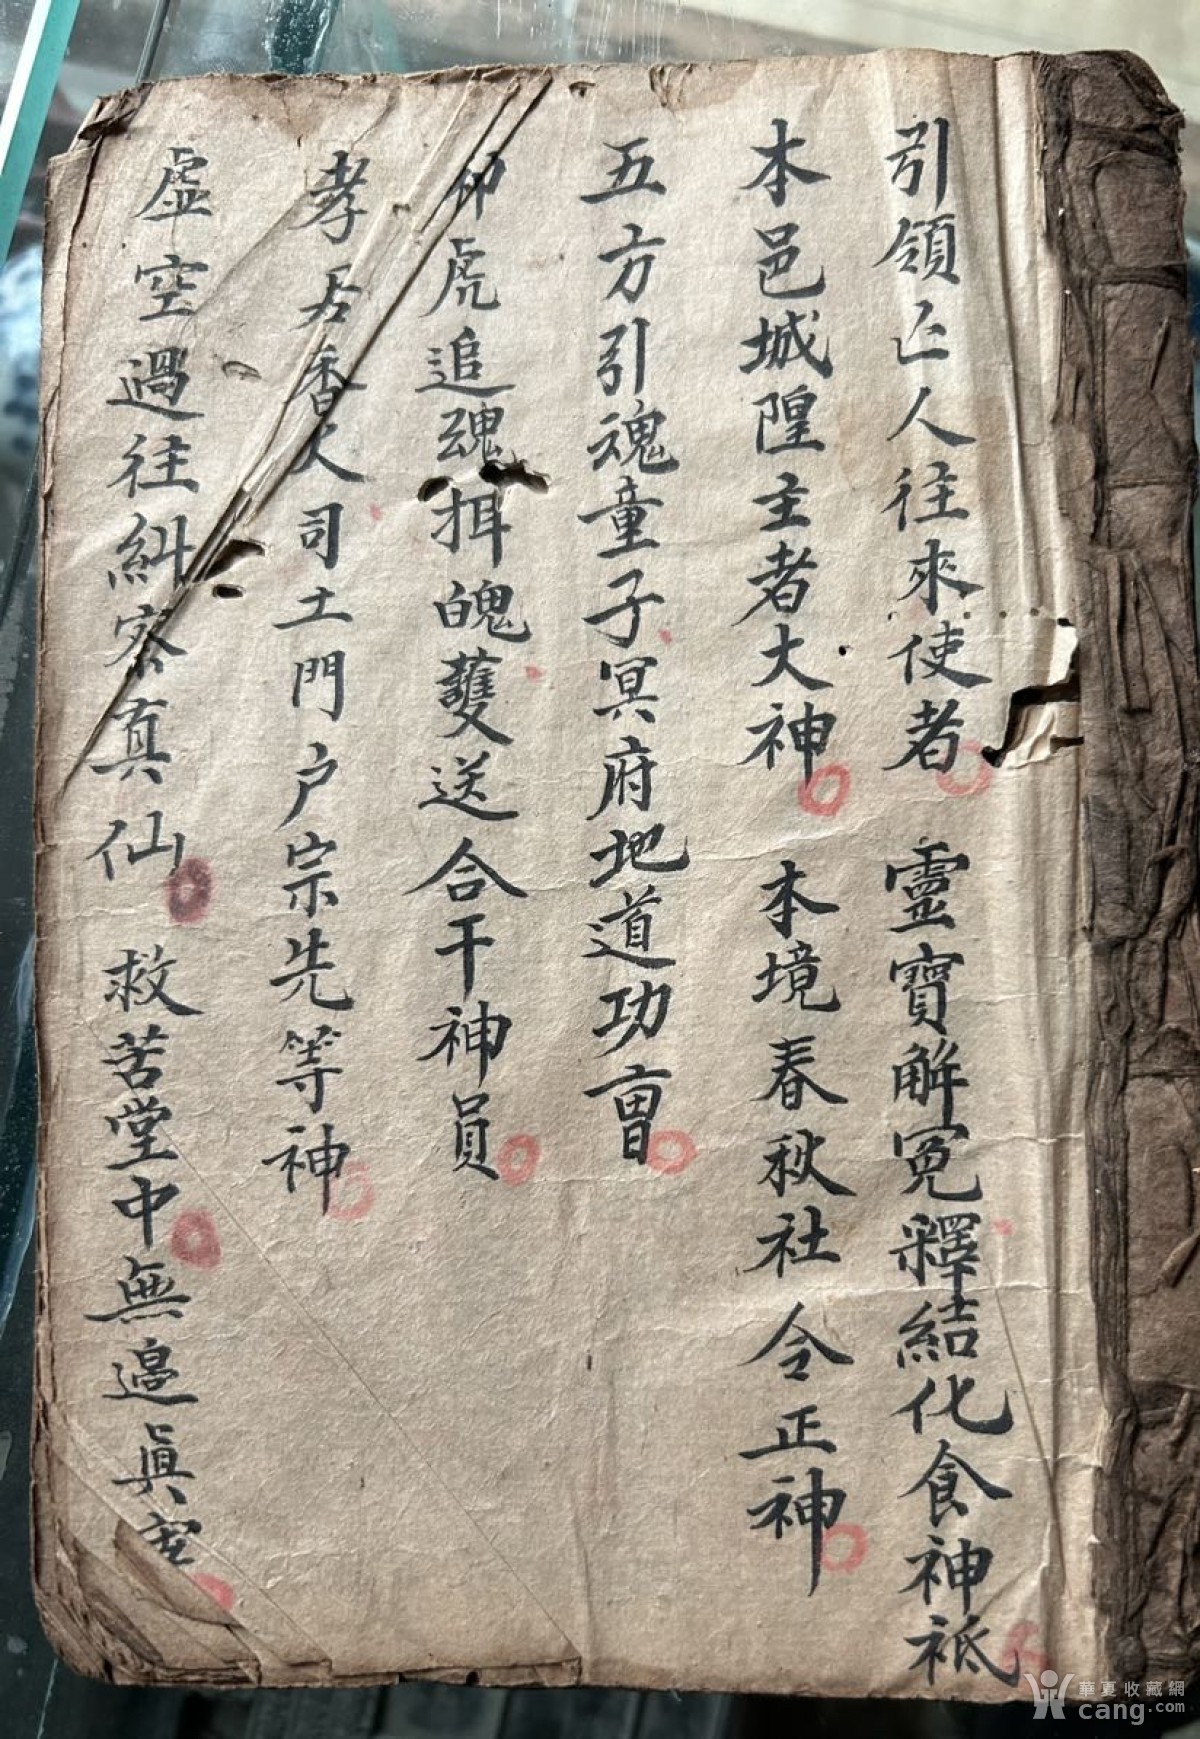 引領亾人往來使者 靈寶解冤釋結化食神祗
本邑城隍主者大神 本境春秋社令正神
五方引魂童子冥府地道功曺
虎追魂揖魄䕶送合干神員
孝居香火司土門户宗先等神
虚空過往糾察真仙 救苦堂中無邉眞宰
華夏收藏網
cang.com